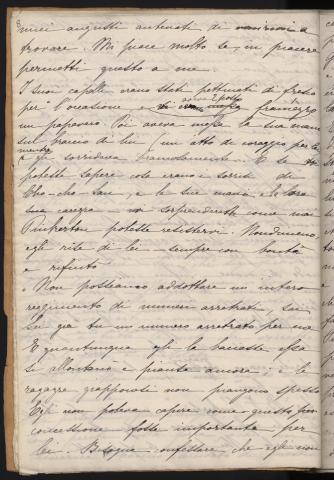 miei augusti antenati di venirmi a
trovare. Mi piace molto se, in piacere
permetti questo a me.
I suoi capelli erano stati pettinati di fresco
per l'occasione e vi aveva posto framezzo
un papavero. Poi aveva messo la sua mano
sul braccio di lui (un atto di coraggio per lei
mentre
e gli sorrideva bramosamente. E se
poteste sapere cosa erano i sorrisi di
Cho-cho-San, e la sua mano e la
sua carezza vi sorprendereste come mai
Pinkerton potesse resistervi. Nondimeno,
egli rise di lei sempre con bontà
e rifiutò.
" Non possiamo addottare un intero
reggimento di numeri arretrati, sai.
Sei già tu un numero arretrato per me
E quantunque egli la baciasse essa
si allontanò e pianse ancora; e le
ragazze giapponesi non piangono spesso
Egli non poteva capire come questa
concessione fosse importante per
lei. Bisogna confessare che egli non